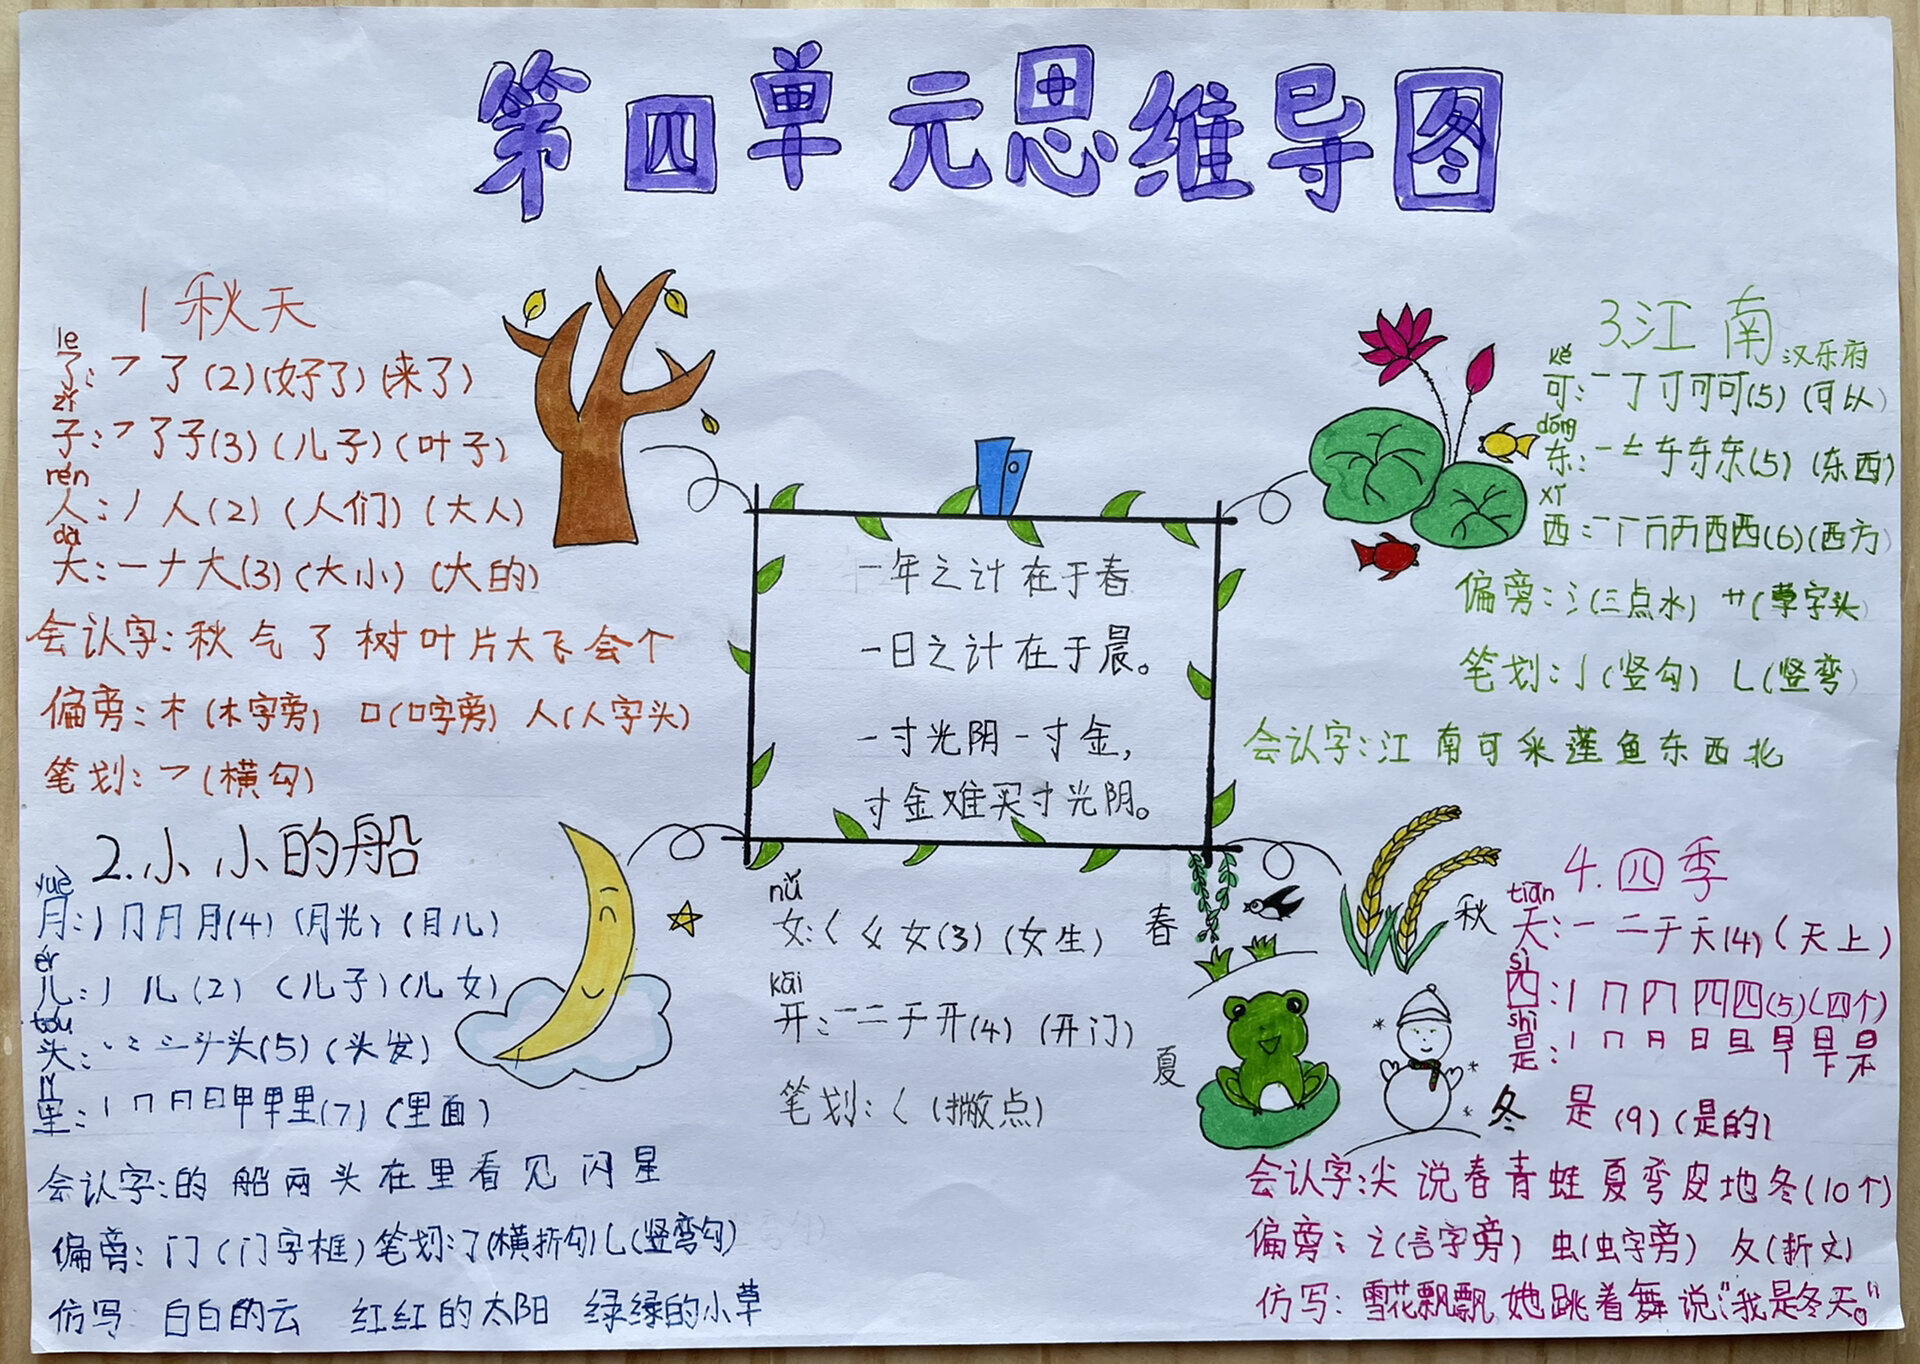 第四单元思维导图
1 秋天
le
了: 乛 了(2)(好了)(来了)
zǐ
子: 乛 了 子(3)(儿子)(叶子)
rén
人: 丿 人(2)(人们)(大人)
dà
大: 一 ナ 大(3)(大小)(大的)
会认字: 秋 气 了 树 叶 片 大 飞 会 个
偏旁: 木(木字旁) 口(口字旁) 人(人字头)
笔划: 乛(横勾)
2.小小的船
yuè
月: 丿 ⺆ 月 月(4)(月光)(月儿)
ér
儿: 丿 儿(2)(儿子)(儿女)
tóu
头: 头(5)(头发)
lǐ
里: 丨 冂 日 日 甲 甲 里(7)(里面)
会认字: 的 船 两 头 在 里 看 见 闪 星
偏旁: 门(门字框) 笔划: ㇆(横折勾) 乚(竖弯勾)
仿写 白白的云 红红的太阳 绿绿的小草
一年之计在于春
一日之计在于晨。
一寸光阴一寸金,
寸金难买寸光阴。
nǚ
女: ㄑ 女 女(3)(女生)
kāi
开: 一 二 于 开(4)(开门)
笔划: ㄑ(撇点)
3.江南 汉乐府
kě
可: 一 丁 可 可 可(5)(可以)
dōng
东: 一 东 东 东(5)(东西)
xī
西: 一 丅 冂 丙 西 西(6)(西方)
偏旁: 氵(三点水) 艹(草字头)
笔划: 亅(竖勾) 乚(竖弯)
会认字: 江 南 可 采 莲 鱼 东 西 北
春
秋
夏
冬
4.四季
tiān
天: 一 二 于 天(4)(天上)
sì
四: 丨 冂 四 四 四(5)(四个)
shì
是: 丨 冂 日 日 旦 早 是 是
是(9)(是的)
会认字: 尖 说 春 青 蛙 夏 弯 皮 地 冬(10个)
偏旁: 讠(言字旁) 虫(虫字旁) 夂(折文)
仿写: 雪花飘飘,她跳着舞说:"我是冬天。"